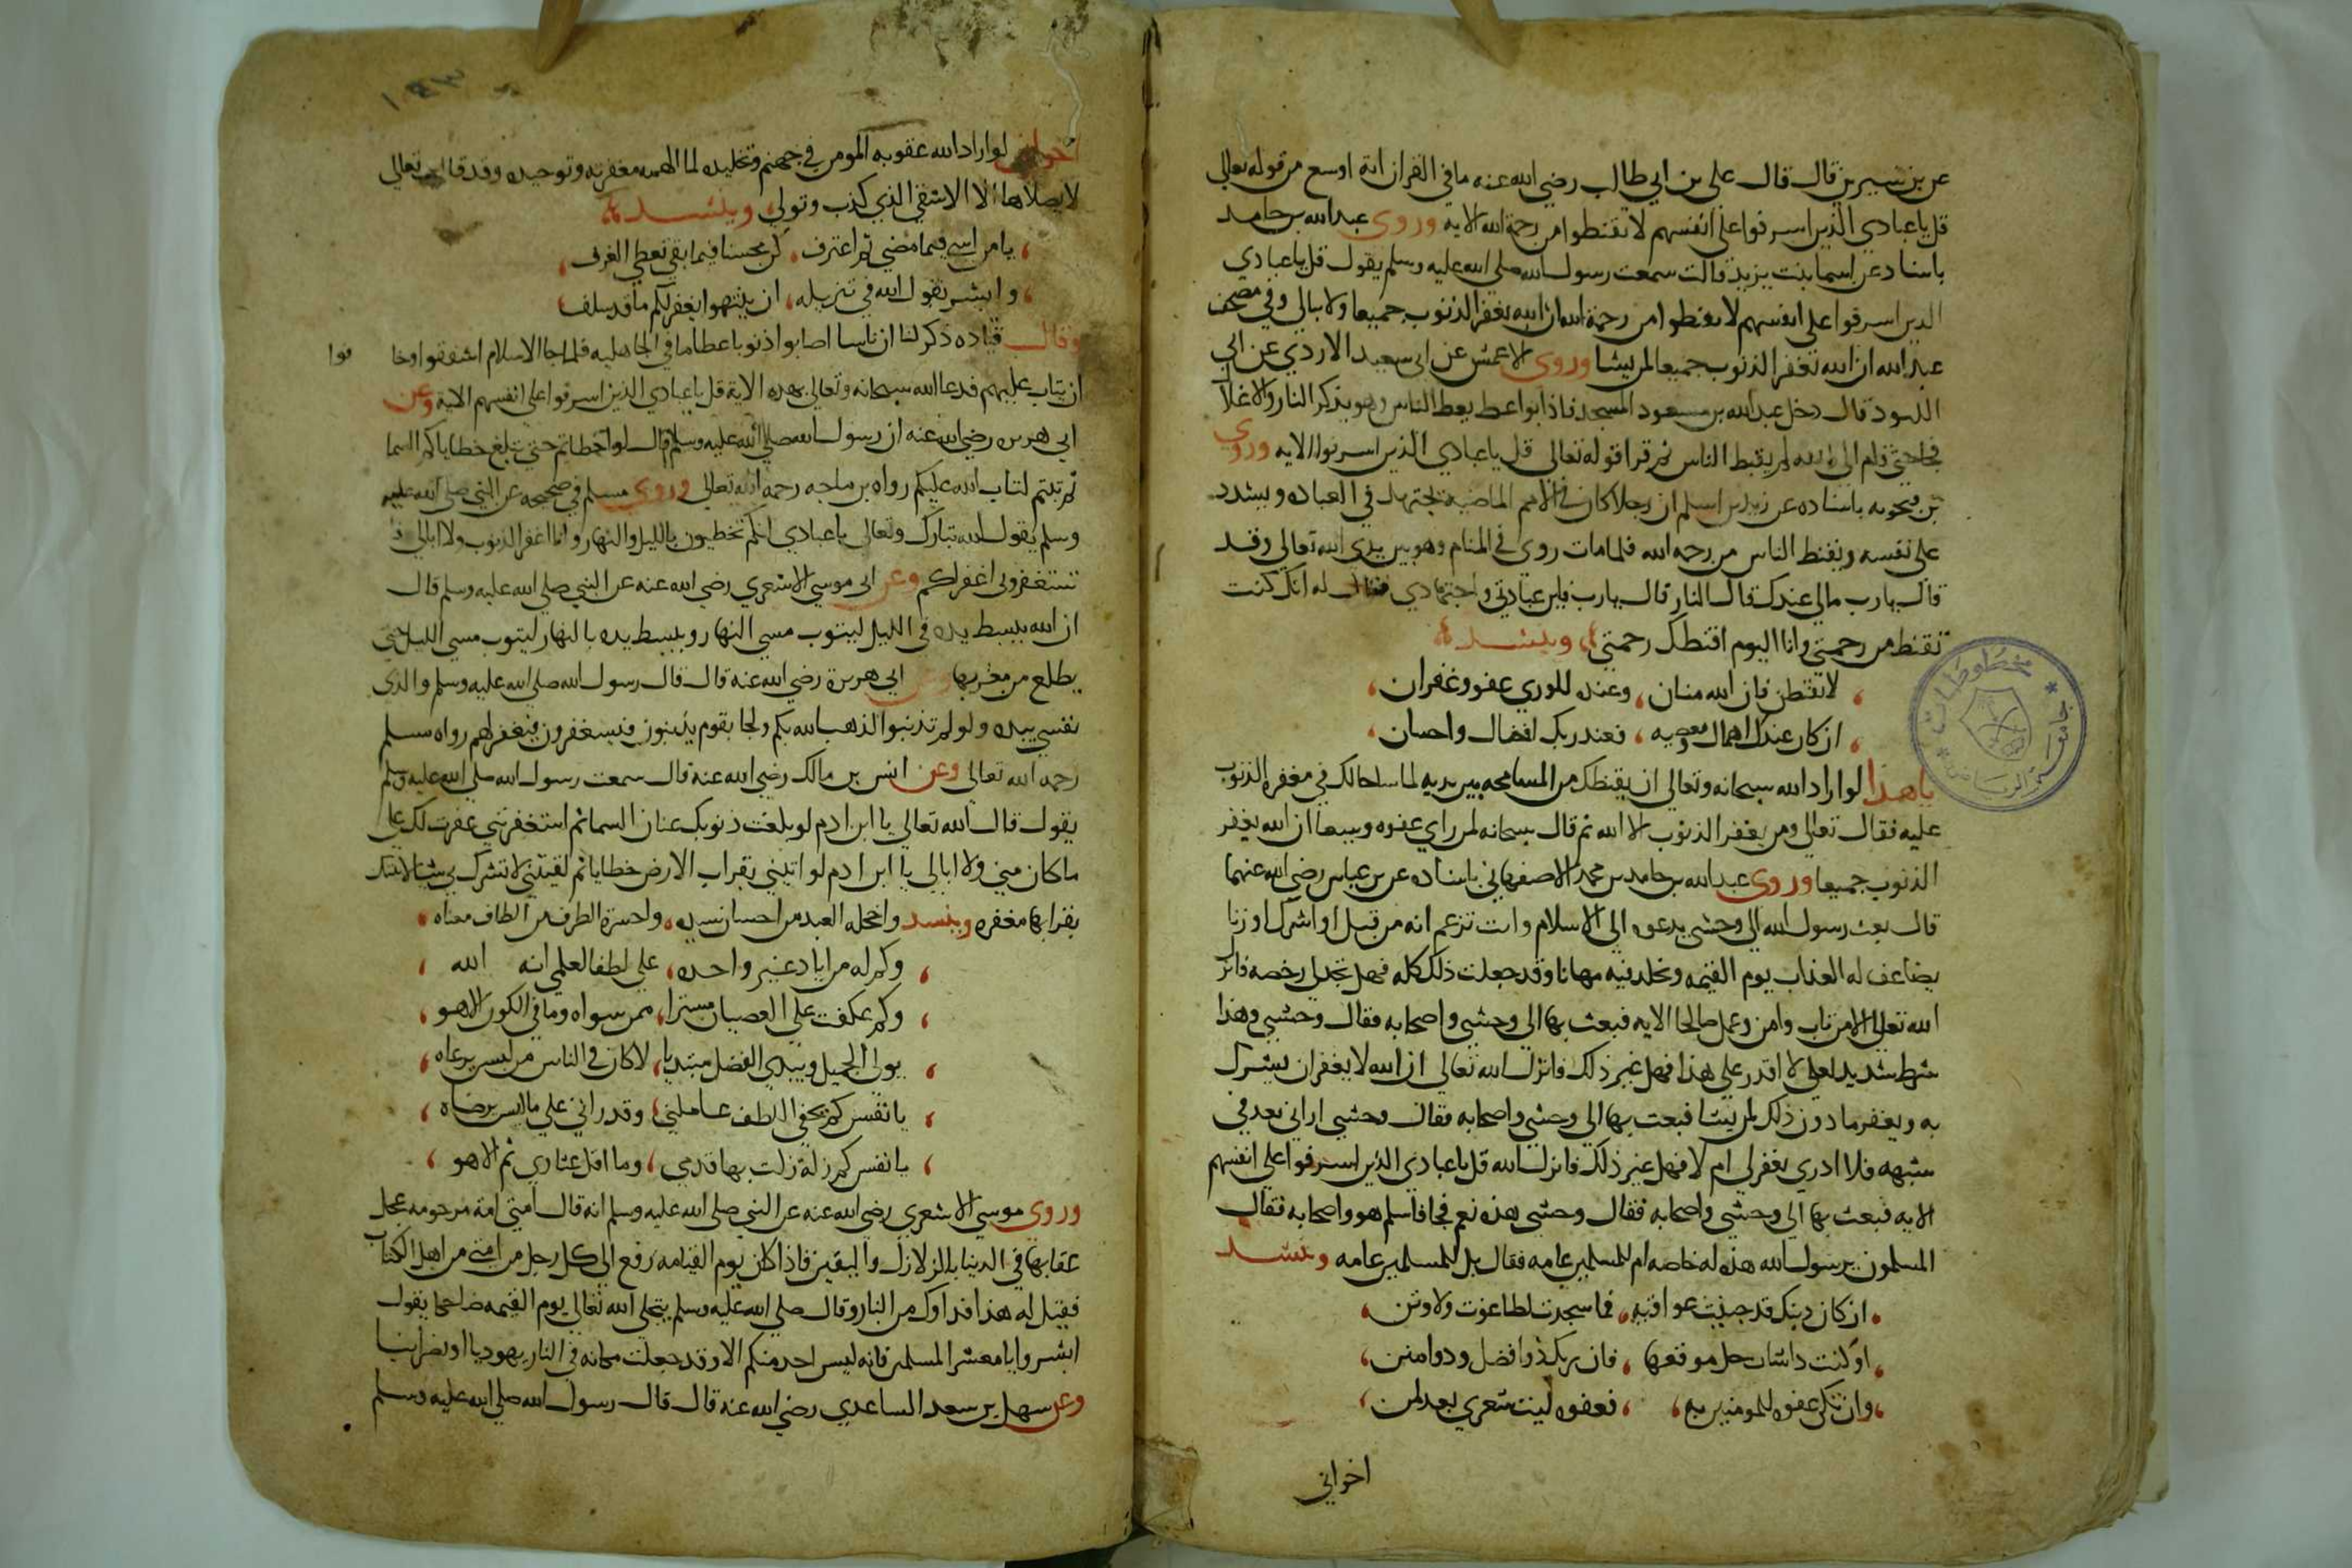 عن بن سيرين قال قال علي بن ابي طالب رضي الله عنه ما في القران اية اوسع من قوله تعالى
قل ياعبادي الذين اسرفوا على انفسهم لا تقنطوا من رحمة الله الايه وروى عبد الله بن حامد
باسناد عن اسما بنت يزيد قالت سمعت رسول الله صلى الله عليه وسلم يقول قل ياعبادي
الذين اسرفوا على انفسهم لا تقنطوا من رحمة الله ان الله يغفر الذنوب جميعا ولا يبالي وفي مصحف
عبد الله ان الله يغفر الذنوب جميعا لمن يشا وروى الاعمش عن ابي سعيد الازدي عن ابي
الكنود قال دخل عبد الله بن مسعود المسجد فاذا بواعظ يعظ الناس وهو يذكر النار والاغلال
فجا حتى قام الى لم يقنط الناس ثم قرا قوله تعالى قل ياعبادي الذين اسرفوا الايه وروى
بن فنجويه باسناده عن زيد بن اسلم ان رجلا كان في الامم الماضيه يجتهد في العباده ويشدد
على نفسه ويقنط الناس من رحمه الله فلما مات روى في المنام وهو بين يدي الله تعالى وقد
قال يارب مالي عندك قال النار قال يارب فاين عبادتي واجتهادي فقال له انك كنت
تقنط من رحمتي وانا اليوم اقنطك رحمتي وينشد
لا تقنطن فان الله منان وعنده للورى عفو وغفران
ان كان عندك اهمال ومعصيه فعند ربك افضال واحسان
ياهذا لو اراد الله سبحانه وتعالى ان يقنطك من المسامحه بين يديه لما احالك في مغفرة الذنوب
عليه فقال تعالى ومن يغفر الذنوب الا الله ثم قال سبحانه لمن راي عفوه وسيعا ان الله يغفر
الذنوب جميعا وروى عبد الله بن حامد بن محمد الاصفهاني باسناده عن بن عباس رضي الله عنهما
قال بعث رسول الله الى وحشي يدعوه الى الاسلام وانت تزعم انه من قتل او اشرك او زنا
يضاعف له العذاب يوم القيمه ويخلد فيه مهانا وقد جعلت ذلك كله فهل تجد لي رخصه فانزل
الله تعالى الا من تاب وامن وعمل صالحا الايه فبعث بها الى وحشي واصحابه فقال وحشي وهذا
شرط شديد لعلي لا اقدر على هذا فهل غير ذلك فانزل الله تعالى ان الله لا يغفر ان يشرك
به ويغفر ما دون ذلك لمن يشا فبعث بها الى وحشي واصحابه فقال وحشي اراني بعد في
شبهه فلا ادري يغفر لي ام لا فهل غير ذلك فانزل الله قل ياعبادي الذين اسرفوا على انفسهم
الايه فبعث بها الى وحشي واصحابه فقال وحشي هذه نعم فجا فاسلم هو واصحابه فقال
المسلمون يرسول الله هذه له خاصه ام للمسلمين عامه فقال بل للمسلمين عامه وينشد
ان كان ذنبك قد جنيت عواقبه فما سجدت لطاغوت ولا وثن
او كنت ذا شان حل موقعها فان ربك ذو افضل وذو امنن
وان تكن عفوه للمومنين به فعفوه ليت شعري بعد لمن
اخواني
اخواني لو اراد الله عقوبه المومن في جهنم وتخليده لما الهمه معفرته وتوحيده وقد قال تعالى
لا يصلاها الا الاشقى الذي كذب وتولى وينشد
يامن اسى فيما مضى ثم اعترف كن محسنا فيما بقى تعطى الغرف
وابشر بقول الله في تنزيله ان ينتهوا يغفر لكم ما قد سلف
وقال قتاده ذكر لنا ان ناسا اصابوا ذنوبا عظاما في الجاهليه فلما جا الاسلام اشفقوا وخا فوا
ان يتاب عليهم فدعا الله سبحانه وتعالى بهذه الاية قل ياعبادي الذين اسرفوا على انفسهم الاية وعن
ابي هريره رضي الله عنه ان رسول الله صلى الله عليه وسلم قال لو اخطاتم حتى تبلغ خطاياكم السما
ثم تبتم لتاب الله عليكم رواه بن ماجه رحمه الله تعالى وروى مسلم في صحيحه عن النبي صلى الله عليه
وسلم يقول الله تبارك وتعالى ياعبادي انكم تخطيون بالليل والنهار وانا اغفر الذنوب ولا ابالي فا
ستغفروني اغفر لكم وعن ابي موسى الاشعري رضي الله عنه عن النبي صلى الله عليه وسلم قال
ان الله يبسط يده في الليل ليتوب مسي النهار ويبسط يده بالنهار ليتوب مسي الليل حتى
يطلع من مغربها وعن ابي هريرة رضي الله عنه قال قال رسول الله صلى الله عليه وسلم والذي
نفسي بيده ولو لم تذنبوا لذهب الله بكم ولجا بقوم يذنبون فيستغفرون فيغفر لهم رواه مسلم
رحمه الله تعالى وعن انس بن مالك رضي الله عنه قال سمعت رسول الله صلى الله عليه وسلم
يقول قال الله تعالى يا ابن ادم لو بلغت ذنوبك عنان السما ثم استغفرتني غفرت لك على
ما كان مني ولا ابالي يا ابن ادم لو اتيتني بقراب الارض خطايا ثم لقيتني لا تشرك بي شيا لاتيتك
بقرابها مغفره وينشد واخجله العبد من احسان سيده واحسرة الطرف من الطاف معناه
وكم له من اياد غير واحده على لطفا لعلمي انه الله
وكم عكفت على العصيان مستترا ممن سواه وما في الكون الا هو
يولى الجميل ويبدي الفضل مبتديا لا كان في الناس من ليس يرعاه
يانفس كم بخفي اللطف عاملني وقد راني على ما ليس يرضاه
يانفس كم زلة زلت بها قدمي وما اقل عثاري ثم الا هو
وروى موسى الاشعري رضي الله عنه عن النبي صلى الله عليه وسلم انه قال امتي امة مرحومه عجل
عقابها في الدنيا بالزلازل واليقين فاذا كان يوم القيامه رفع الى كل رجل من امتي من اهل الكتاب
فقيل له هذا فداوك من النار وقال صلى الله عليه وسلم يتجلى الله تعالى يوم القيمه ضاحكا يقول
ابشروا يا معشر المسلمين فانه ليس احد منكم الا وقد جعلت مكانه في النار يهوديا او نصرانيا
وعن سهل بن سعد الساعدي رضي الله عنه قال قال رسول الله صلى الله عليه وسلم